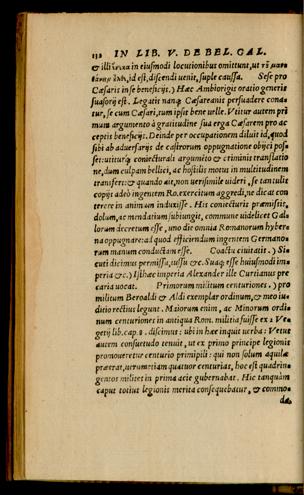 132 IN LIB. V. DE BEL. GAL.
& illi ἕνεκα in eiusmodi locutionibus omittunt, ut τῦ
id est, discendi uenit, suple caussa. Sese pro
Cæsaris in se beneficijs.) Hæc Ambiorigis oratio generis
suasorij est. Legatis nanq; Cæsareanis persuadere cona=
tur, se cum Cæsari, tum ipsis bene uelle. Vtitur autem pri
mum argumento à gratitudine sua erga Cæsarem pro ac
ceptis beneficijs. Deinde per occupationem diluit id, quod
sibi ab aduersarijs de castrorum oppugnatione obijci pos=
set: utiturq; coniecturali argumẽto & criminis translatio
ne, dum culpam belli ac hostilis motus in multitudinem
transfert: & quando aiunt uerisimile uideri, se tantulis
copijs adeò ingentem Ro. exercitum aggredi, ne dicat con
terere in animum induxisse. His coniecturis præmissis,
dolum, ac mendatium subiungit, commune uidelicet Gal=
lorum decretum esse, uno die omnia Romanorum hyberna
oppugnare: ad quod efficiendum ingentem Germano=
rum manum conductam esse. Coactu ciuitatis.) Si=
cuti dicimus permissu, iussu &c. Suaq; esse huiusmodi im=
peria &c.) Isthæc imperia Alexander ille Curtianus pre
caria uocat. Primorum militum centuriones.) pro
militum Beroaldi & Aldi exemplar ordinum, & meo iu=
ditio rectius legunt. Maiorum enim, ac Minorum ordi=
num centuriones in antiqua Rom. militia fuisse ex 2 Ve=
getij lib. cap. 8. discimus: ubi in hæc inquit uerba: Vetus
autem consuetudo tenuit, ut ex primo principe legionis
promoueretur centurio primipili: qui non solum aquilæ
præerat, uerumetiam quatuor centurias, hoc est quadrin=
gentos milites in prima acie gubernabat. Hic tanquàm
caput totius legionis merita consequebatur, & commo=
da,